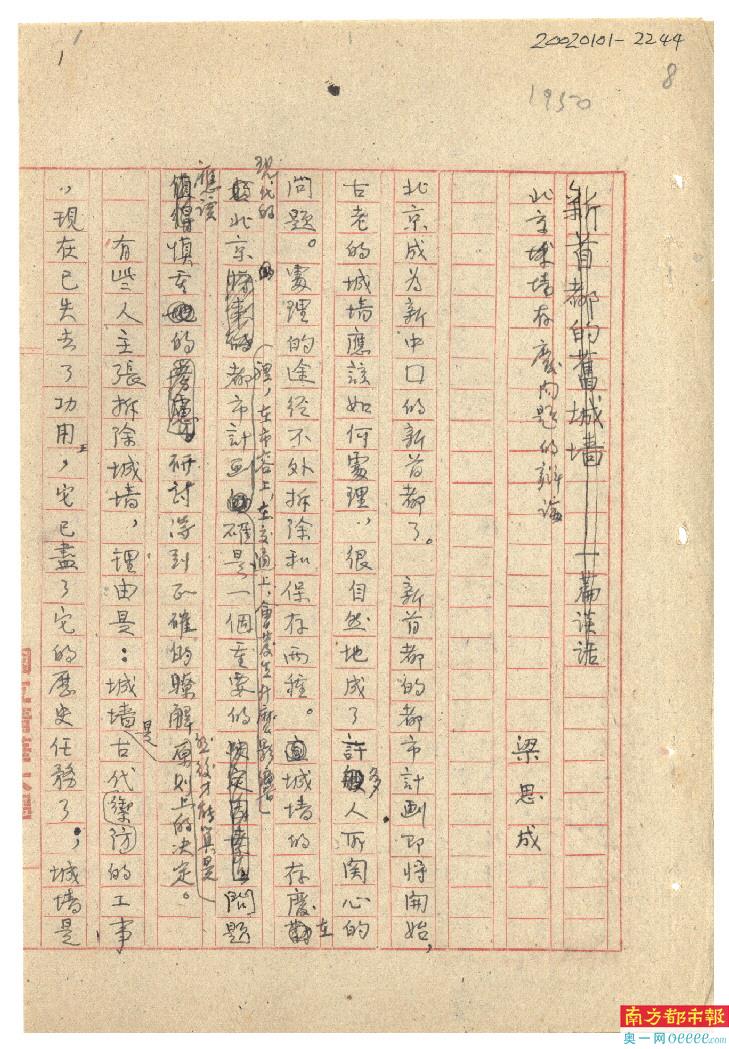 20020101-2244
1
8
1950
新首都的舊城墙——一篇談話
北京城墙存廢问题的辯論
梁思成
北京成为新中口的新首都了。新首都的都市計画即将開始，
古老的城墙應該如何處理，很自然地成了許多人所関心的
問題。處理的途径不外拆除和保存両種。城墙的存廢在
现代的
北京都市計画裡，在市容上，在交通上，會發生什麽影響，確是一個重要的問題
應該慎重的研討得到正確的瞭解然後才能算是原則上的决定。
有些人主張拆除城墙，理由是：城墙是古代禦防的工事
，現在已失去了功用，它已盡了它的歷史任務了；城墙是
南方都市報
奥一网oeeee.com